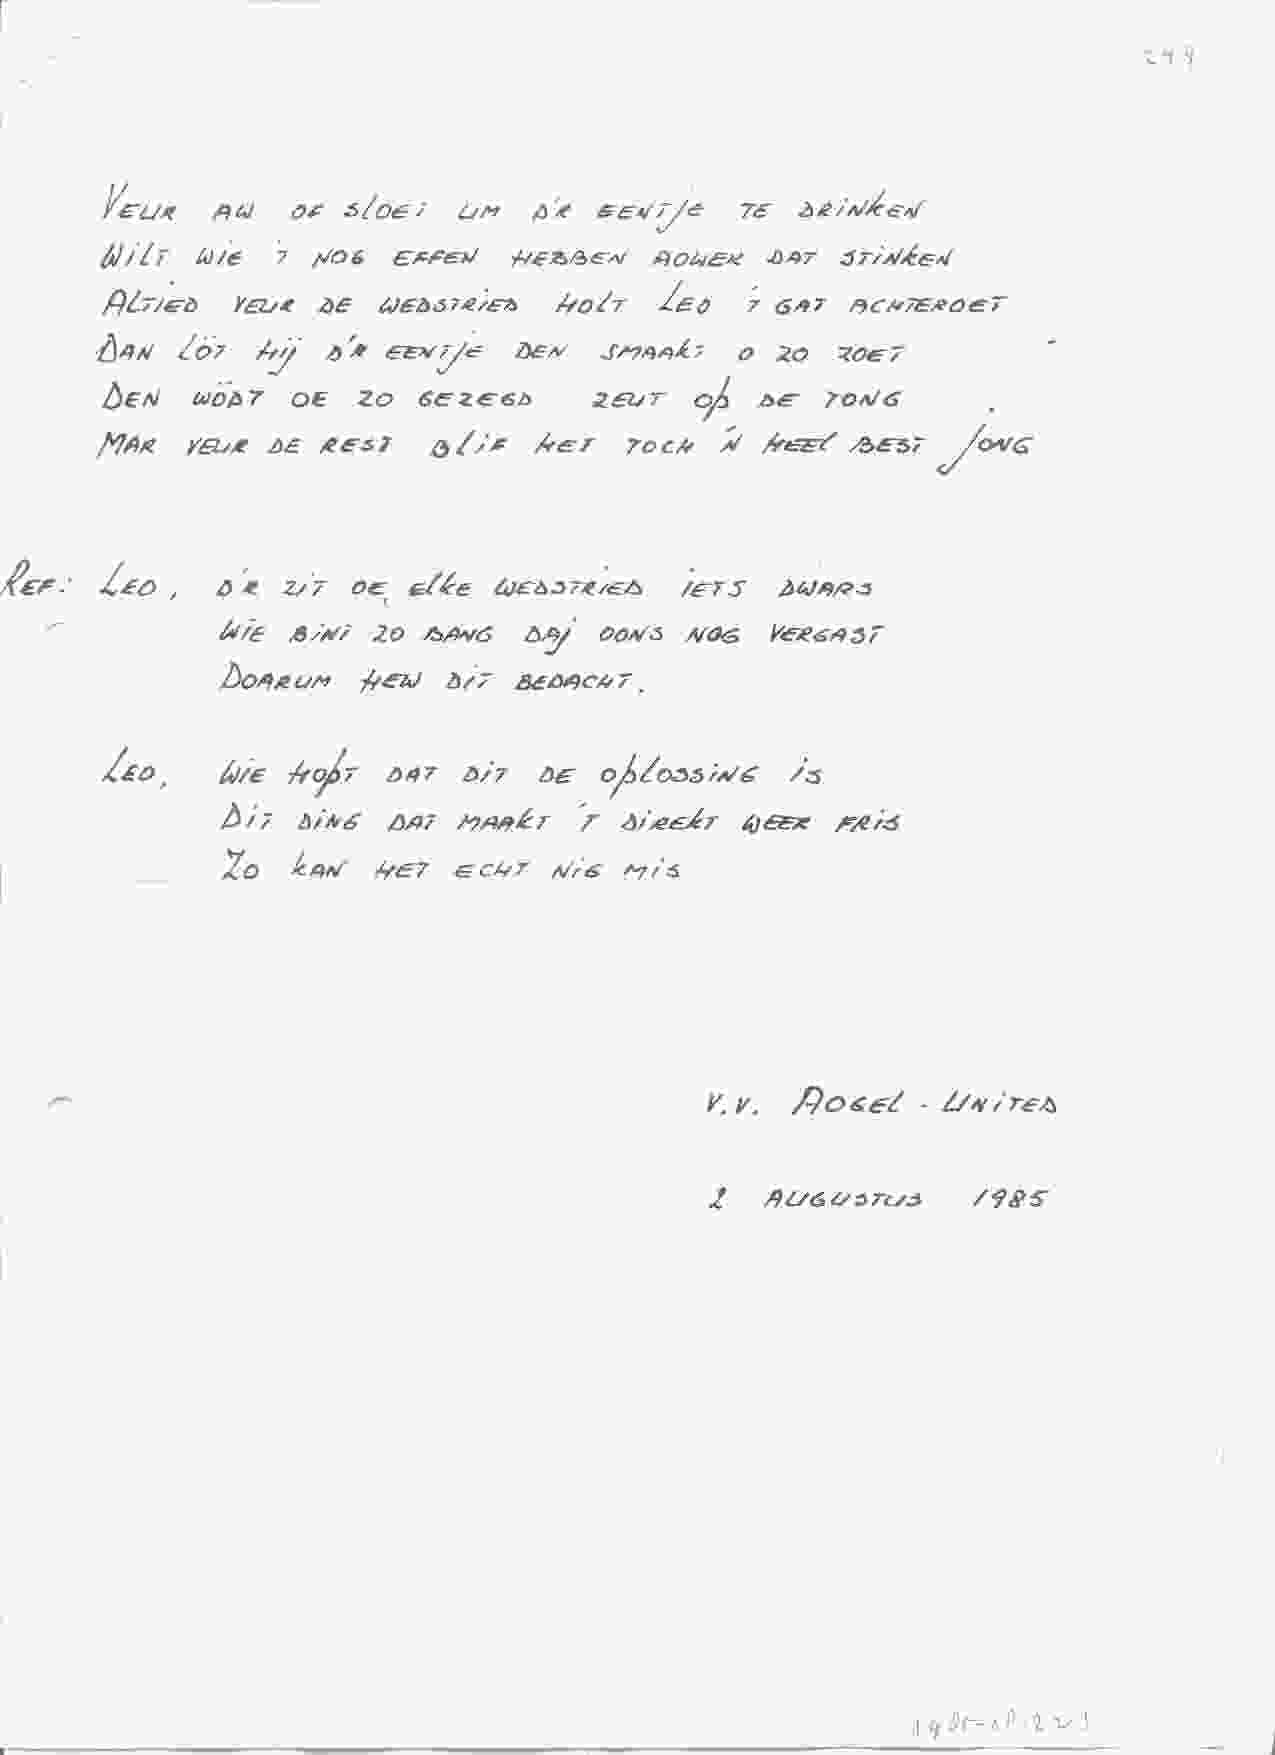 248
Veur aw of sloei um d'r eentje te drinken
Wilt wie 't nog effen hebben aower dat stinken
Altied veur de wedstried holt Leo 't gat achteroet
Dan löt hij d'r eentje den smaakt o zo zoet
Den wödt oe zo gezegd zeut op de tong
Mar veur de rest blif het toch 'n heel best jong
Ref: Leo, d'r zit oe elke wedstried iets dwars
Wie bint zo bang daj oons nog vergast
Doarum hew dit bedacht.
Leo, Wie hopt dat dit de oplossing is
Dit ding dat maakt 't direkt weer fris
Zo kan het echt nig mis
v.v. Aogel - United
2 augustus 1985